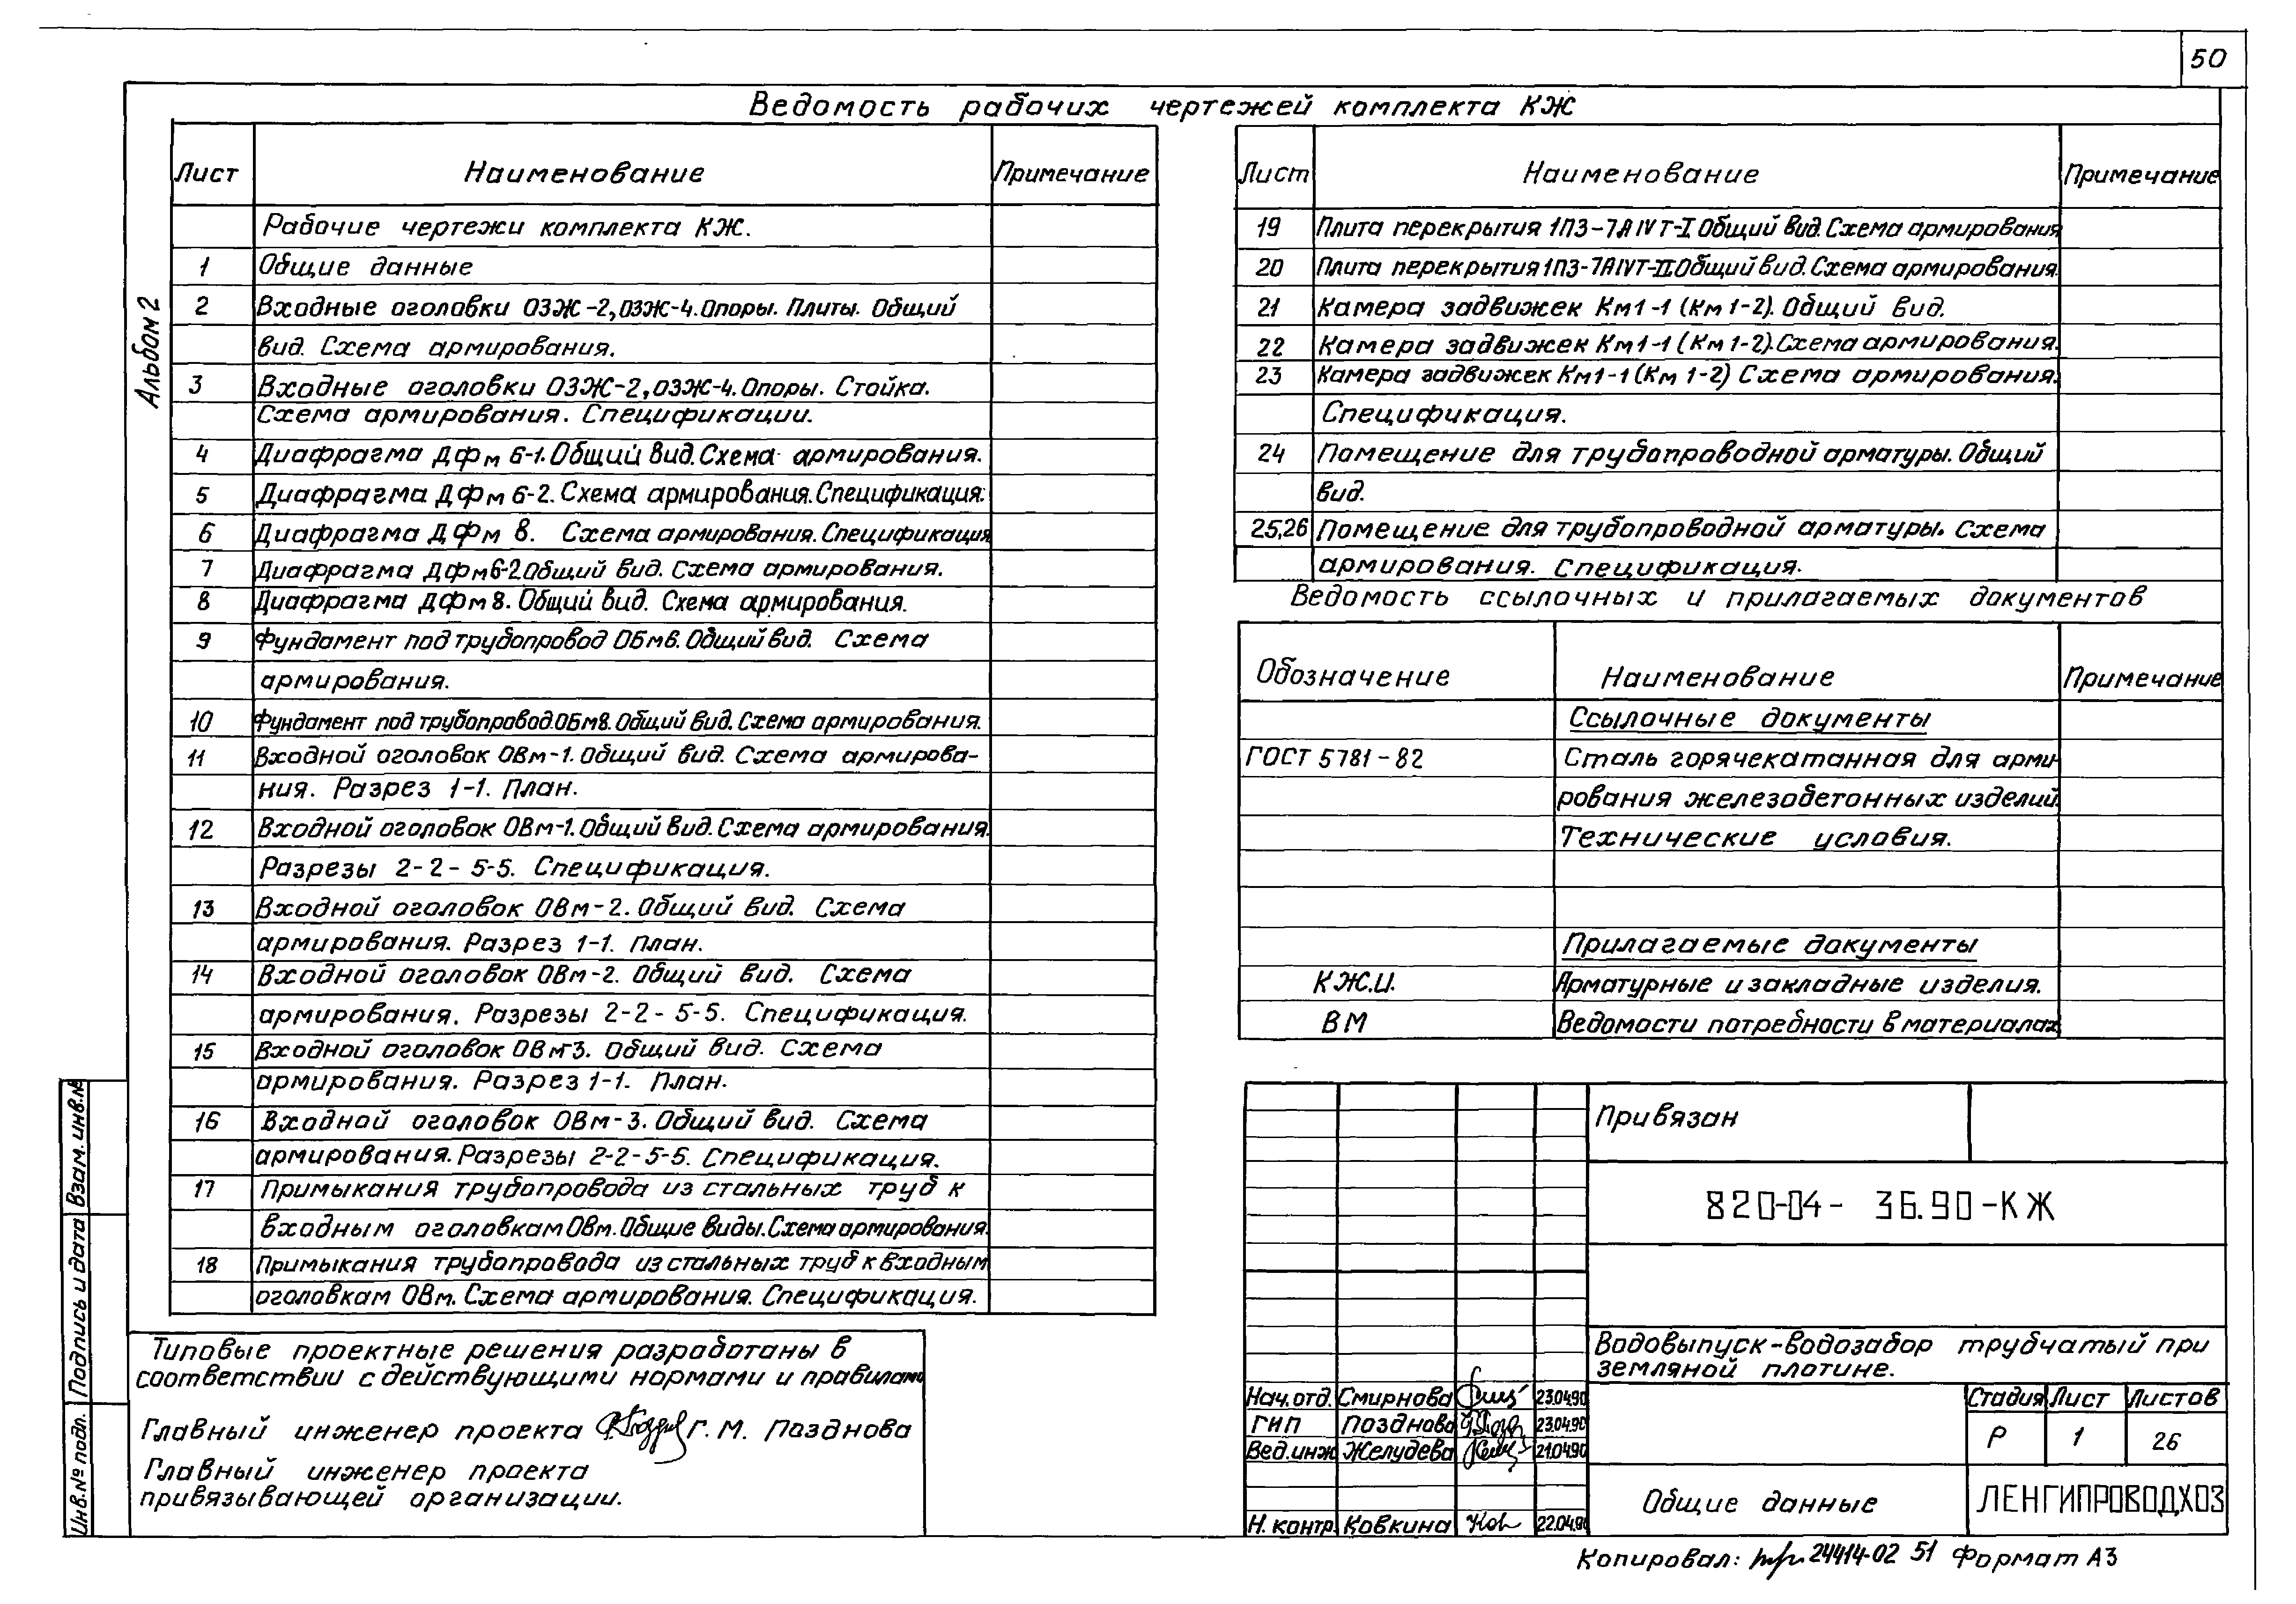 50
Альбом 2
Ведомость рабочих чертежей комплекта КЖ
Лист Наименование Примечание
Рабочие чертежи комплекта КЖ.
1 Общие данные
2 Входные оголовки ОЗЖ-2, ОЗЖ-4. Опоры. Плиты. Общий
вид. Схема армирования.
3 Входные оголовки ОЗЖ-2, ОЗЖ-4. Опоры. Стойка.
Схема армирования. Спецификации.
4 Диафрагма Дфм 6-1. Общий вид. Схема армирования.
5 Диафрагма Дфм 6-2. Схема армирования. Спецификация.
6 Диафрагма Дфм 8. Схема армирования. Спецификация
7 Диафрагма Дфм 6-2 Общий вид. Схема армирования.
8 Диафрагма Дфм 8. Общий вид. Схема армирования.
9 Фундамент под трубопровод ОБм6. Общий вид. Схема
армирования.
10 Фундамент под трубопровод ОБм8. Общий вид. Схема армирования.
11 Входной оголовок ОВм-1. Общий вид. Схема армирова-
ния. Разрез 1-1. План.
12 Входной оголовок ОВм-1. Общий вид. Схема армирования.
Разрезы 2-2 - 5-5. Спецификация.
13 Входной оголовок ОВм-2. Общий вид. Схема
армирования. Разрез 1-1. План.
14 Входной оголовок ОВм-2. Общий вид. Схема
армирования. Разрезы 2-2 - 5-5. Спецификация.
15 Входной оголовок ОВм-3. Общий вид. Схема
армирования. Разрез 1-1. План.
16 Входной оголовок ОВм-3. Общий вид. Схема
армирования. Разрезы 2-2-5-5. Спецификация.
17 Примыкания трубопровода из стальных труб к
входным оголовкам ОВм. Общие виды. Схема армирования.
18 Примыкания трубопровода из стальных труб к входным
оголовкам ОВм. Схема армирования. Спецификация.
Лист Наименование Примечание
19 Плита перекрытия 1П3-7АIVТ-I Общий вид. Схема армирования
20 Плита перекрытия 1П3-7АIVТ-II Общий вид. Схема армирования.
21 Камера задвижек Км1-1 (Км 1-2). Общий вид.
22 Камера задвижек Км1-1 (Км 1-2). Схема армирования.
23 Камера задвижек Км1-1 (Км 1-2) Схема армирования.
Спецификация.
24 Помещение для трубопроводной арматуры. Общий
вид.
25,26 Помещение для трубопроводной арматуры. Схема
армирования. Спецификация.
Ведомость ссылочных и прилагаемых документов
Обозначение Наименование Примечание
Ссылочные документы
ГОСТ 5781-82 Сталь горячекатанная для арми-
рования железобетонных изделий.
Технические условия.
Прилагаемые документы
КЖ.И. Арматурные и закладные изделия.
ВМ Ведомости потребности в материалах
Типовые проектные решения разработаны в
соответствии с действующими нормами и правилами
Главный инженер проекта Г. М. Позднова
Главный инженер проекта
привязывающей организации.
Взам. инв.№
Подпись и дата
Инв.№ подл.
Привязан
820-04-36.90-КЖ
Водовыпуск-водозабор трубчатый при
земляной плотине.
Нач.отд. Смирнова 23.04.90
ГИП Позднова 23.04.90
Вед.инж Желудева 21.04.90
Н. контр. Ковкина 22.04.90
Стадия Лист Листов
Р 1 26
Общие данные
ЛЕНГИПРОВОДХОЗ
Копировал: 24414-02 51 Формат А3